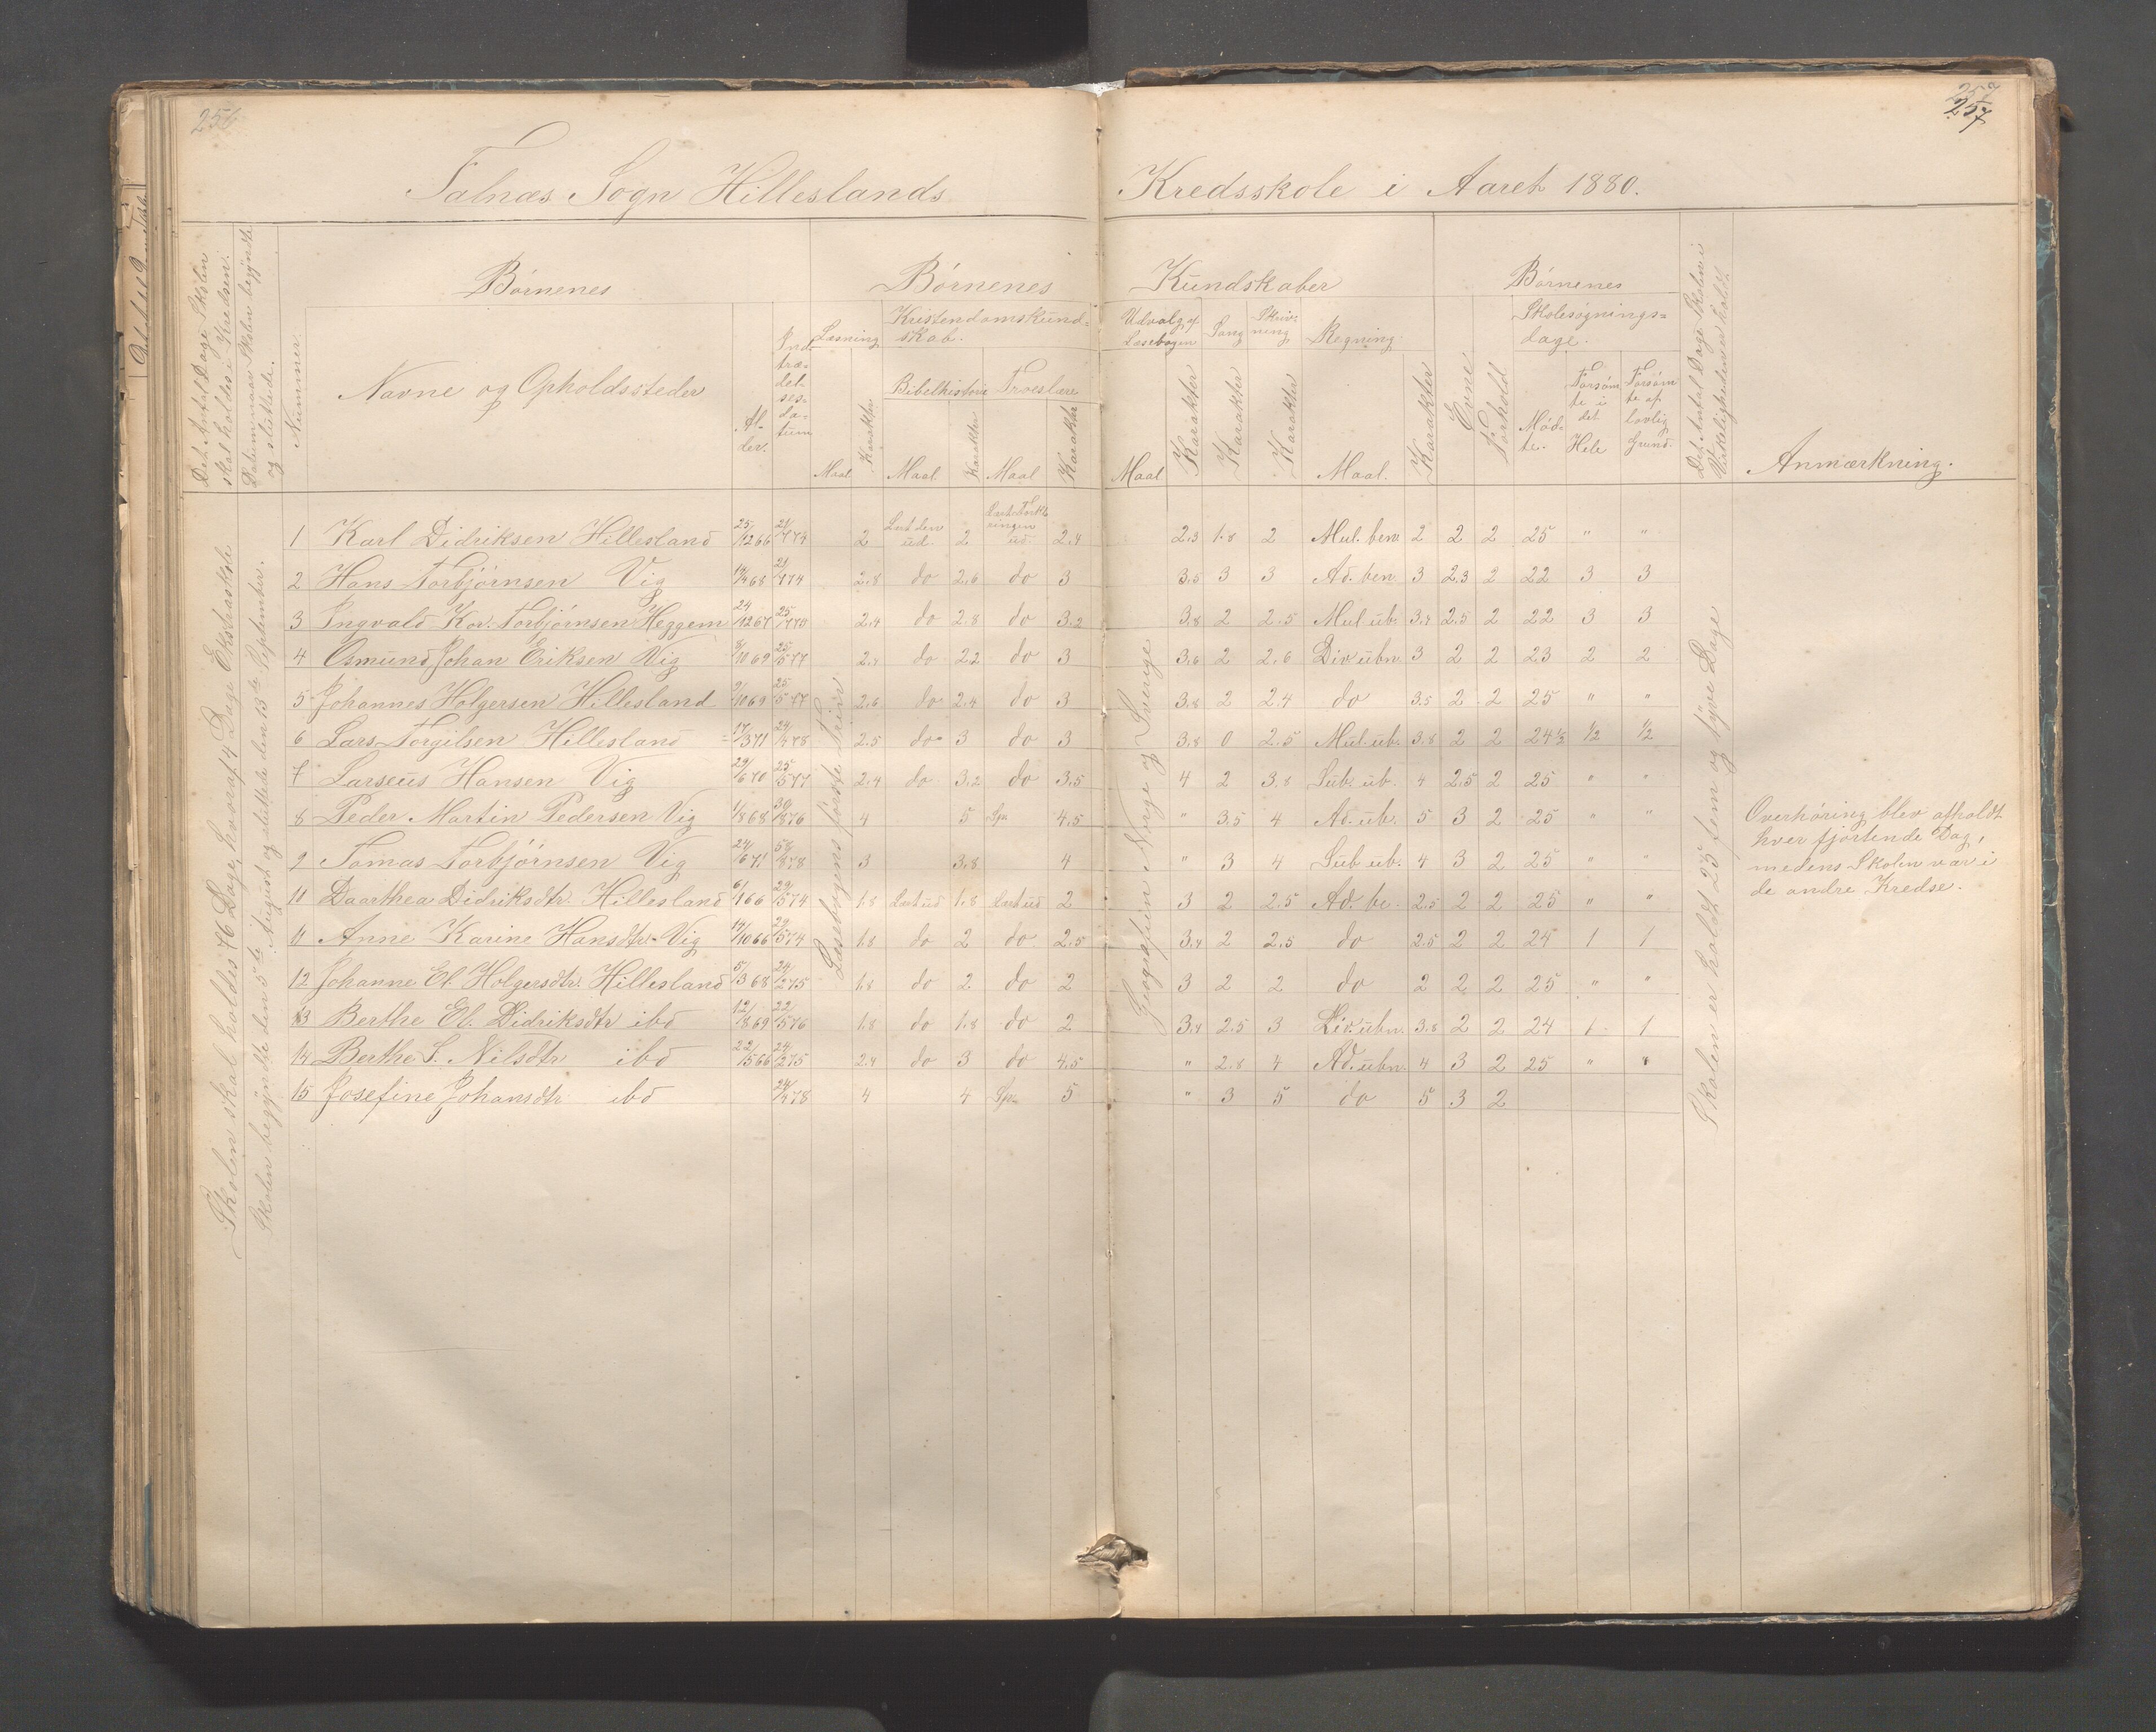 256
257
257
Falnæs Sogn Hilleslands Kredsskole i Aaret 1880.
Det Antal Dage Skolen skal holdes i Kredsen.
Datum naar Skolen begyndte og sluttede.
Nummer.
Børnenes
Navne og Opholdssteder
Alder.
Indtrædelsesdatum
Børnenes Kundskaber
Læsning
Maal
Karakter
Kristendomskundskab.
Bibelhistorie
Maal
Karakter
Troeslære
Maal
Karakter
Udvalg af Læsebogen
Maal
Karakter
Sang
Karakter
Skrivning
Karakter
Regning
Maal.
Karakter
Evne
Forhold
Børnenes
Skolesøgningsdage.
Mødte.
Forsømte i det Hele
Forsømte af lovlig Grund.
Det Antal Dage Skolen i Virkeligheden er holdt.
Anmærkning.
Skolen skal holdes 76 Dage, hvoraf 4 Dage Ekstraskole
Skolen begyndte den 5te August og sluttede den 13de September.
Læsebogens første Trin
Geografien Norge og Sverige
Skolen er holdt 25 fem og tyve Dage
1 Karl Didriksen Hillesland 25/1266 21/774 2 Læst den ud. 2 Læst Forklaringen ud. 2.4 2.3 1.8 2 Mul. ben. 2 2 2 25 " "
2 Hans Torbjørnsen Vig 2.8 do 2.6 do 3 3.5 3 3 Ad. ben. 3 2.3 2 22 3 3
3 Ingvald Kor. Torbjørnsen Heggem 24/1267 2.4 do 2.8 do 3.2 3.8 2 2.5 Mul ub. 3.4 2.5 2 22 3 3
4 Osmund Johan Eriksen Vig 8/1069 25/577 2.4 do 2.2 do 3 3.6 2 2.6 Div ubn. 3 2 2 23 2 2
5 Johannes Holgersen Hillesland 9/1069 25/577 2.6 do 2.4 do 3 3.8 2 2.4 do 3.5 2 2 25 " "
6 Lars Torgilsen Hillesland 17/371 2.5 do 3 do 3 3.8 0 2.5 Mul. ub. 3.8 2 2 24½ ½ ½
7 Larseus Hansen Vig 29/670 25/577 2.4 do 3.2 do 3.5 4 2 3.8 Sub. ub. 4 2.5 2 25 " "
8 Peder Martin Pedersen Vig 1/868 30/876 4 5 Spr 4.5 " 3.5 4 Ad. ub. 5 3 2 25 " "
9 Tomas Torbjørnsen Vig 24/671 3 3.8 4 " 3 4 Sub ub. 4 3 2 25 " "
10 Daarthea Didriksdtr. Hillesland 6/166 29/574 1.8 Læst ud 1.8 Læst ud 2 3 2 2.5 Ad. be. 2.5 2 2 25 " "
11 Anne Karine Hansdtr. Vig 14/1066 29/574 1.8 do 2 do 2.5 3.4 2 2.5 do 2.5 2 2 24 1 1
12 Johanne El. Holgersdtr. Hillesland 5/368 24/275 1.8 do 2 do 2 3 2 2 do 2 2 2 25 " "
13 Berthe El. Didriksdtr ibd 12/869 22/576 1.8 do 1.8 do 2 3.4 2.5 3 Div. ubn. 3.8 2 2 24 1 1
14 Berthe S. Nilsdtr ibd 22/566 24/275 2.4 do 3 do 4.5 " 2.8 4 Ad. ubn. 4 3 2 25 " "
15 Josefine Johansdtr ibd 4 4 Spr 5 " 3 5 do 5 3 2
Overhøring blev afholdt
hver fjortende Dag,
medens Skolen var i
de andre Kredse.